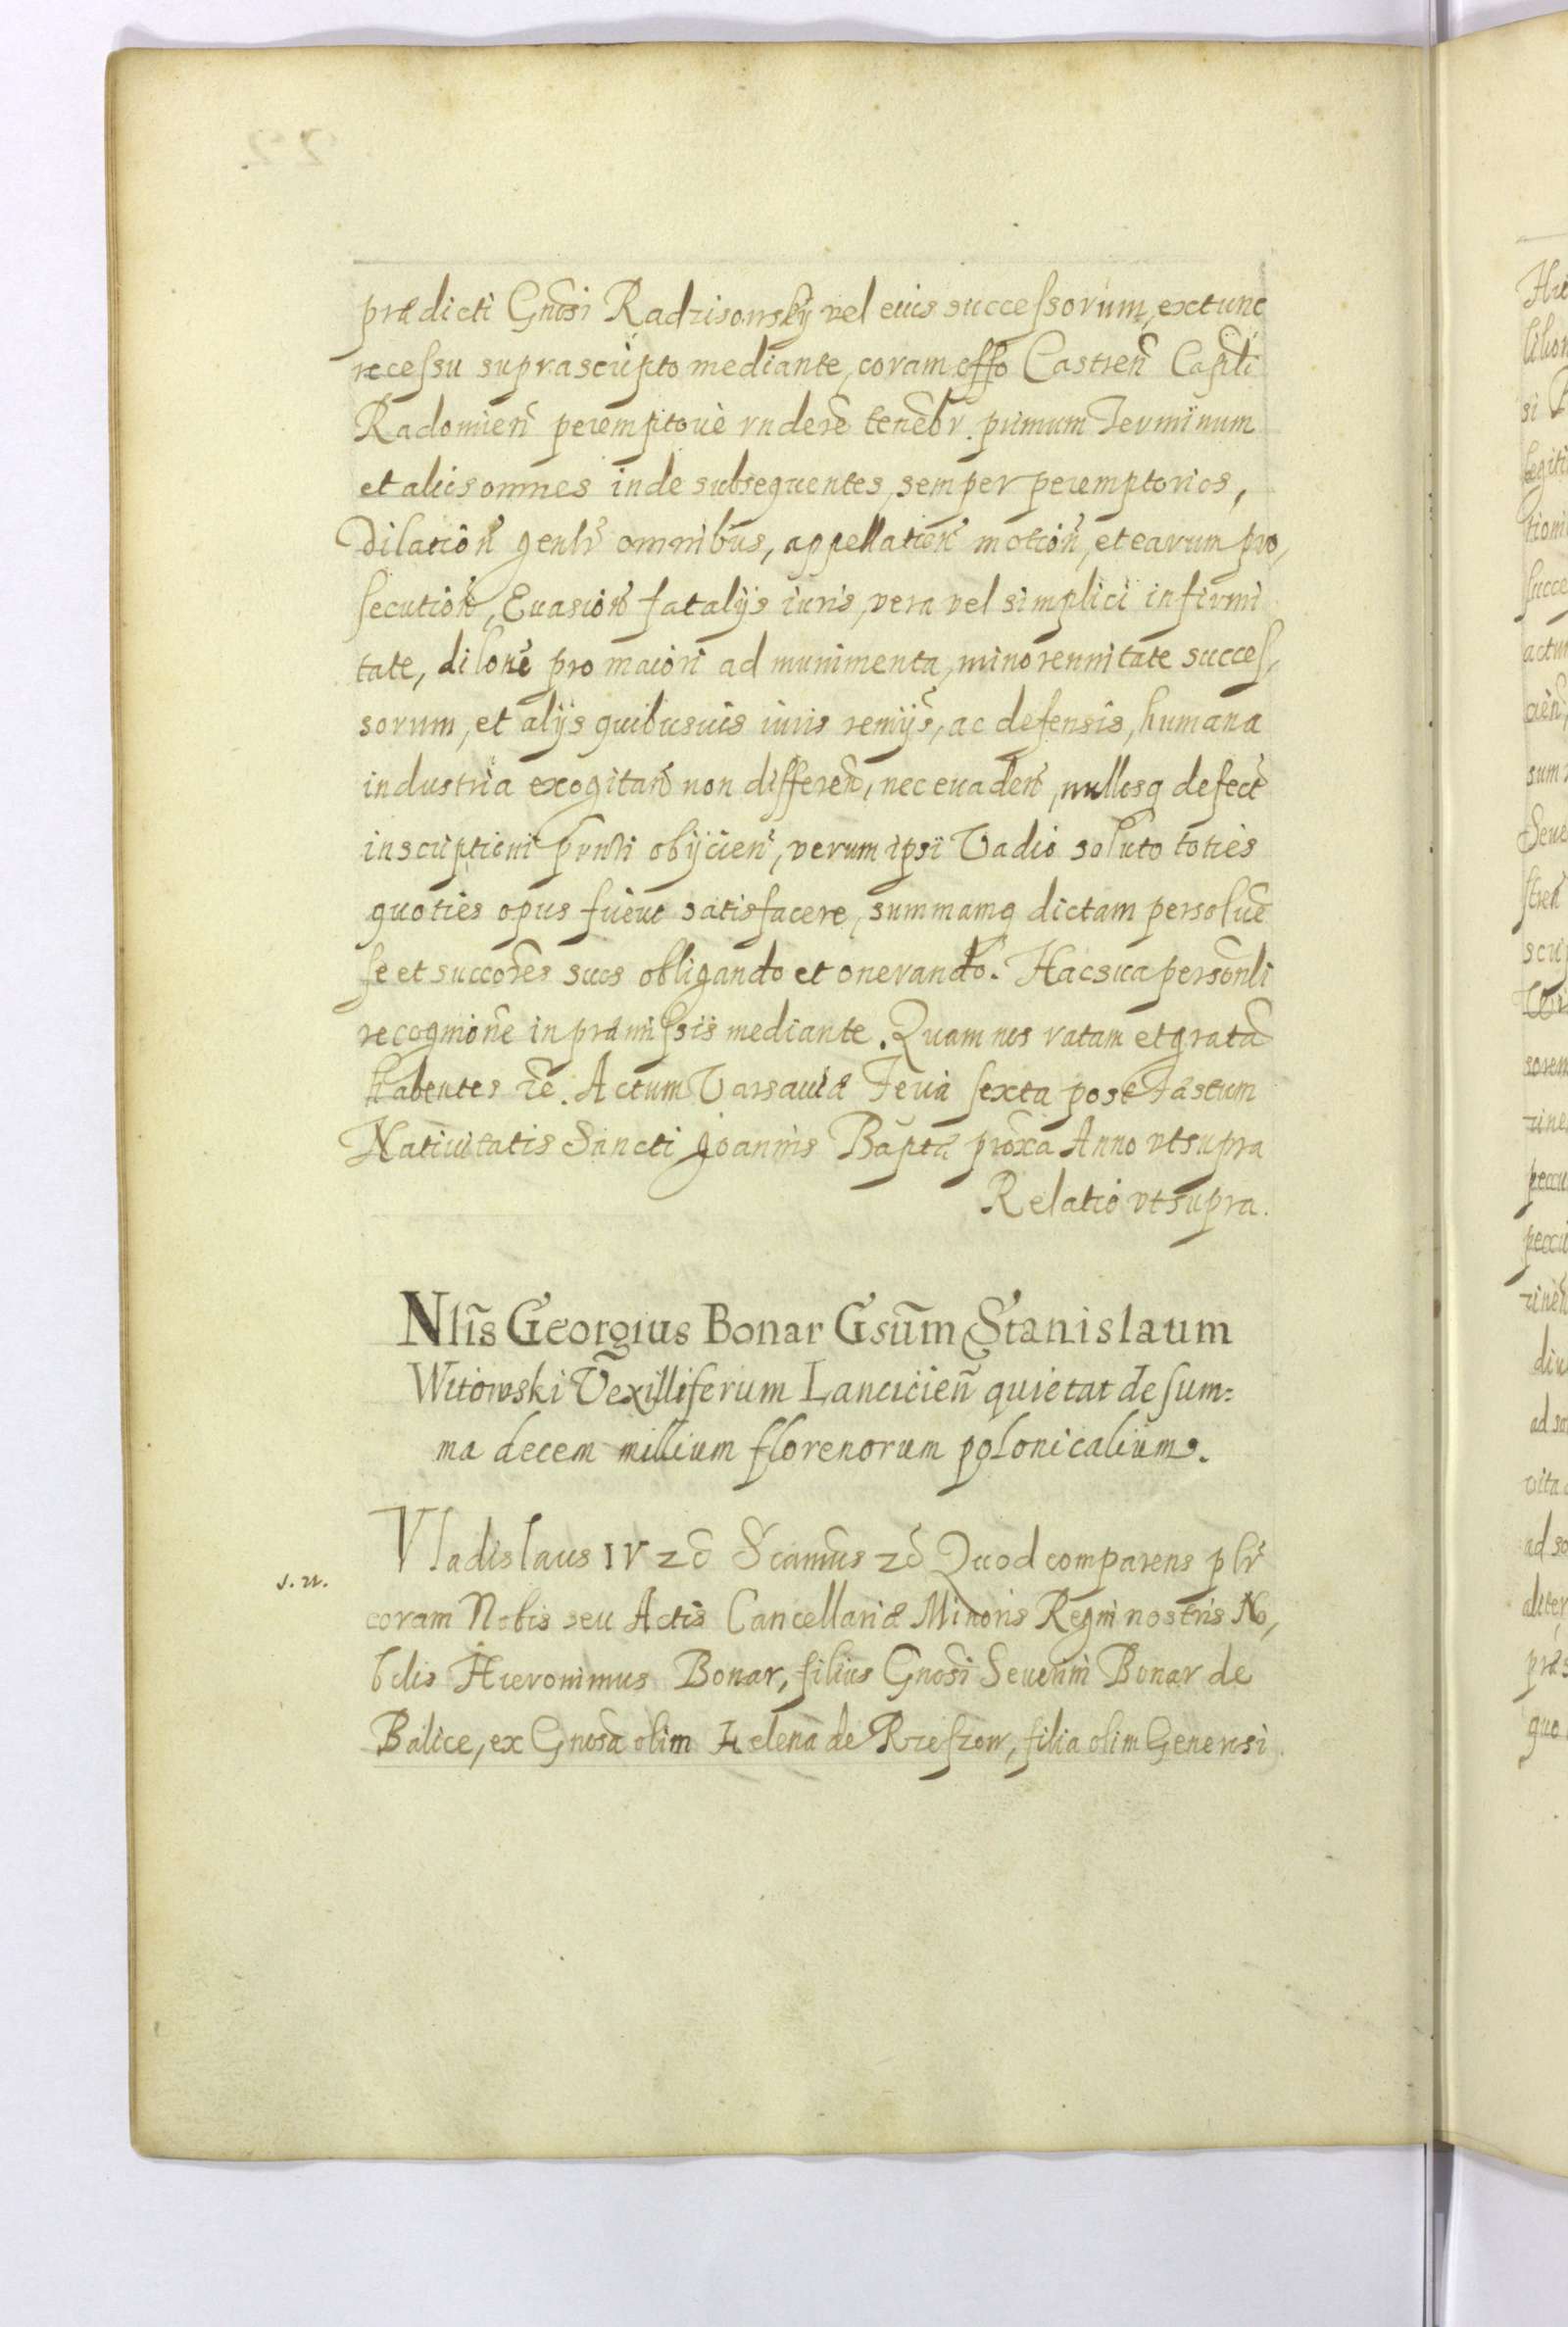 prædicti Gnõsi Radzisowsky vel eius successorum, extunc
recessu suprascripto mediante, coram offo Castreñ Capñli
Radomieñ peremptorie rñdere teñebr. primum Terminum
et alios omnes inde subsequentes, semper peremptorios,
Dilatioñ genlr omnibus, appellatioñ motioñ, et earum pro,
secutioñ, Euasioñ fatalijs iuris, vera vel simplici infirmi
tate, dilõne pro maiori ad munimenta, minorennitate succes,
sorum, et alijs quibusuis iuris remijs, ac defensis, humana
industria exogitañ non differeñ, nec euadeñ, nullosq defect
inscriptioni pñnti obijcieñ, verum ipsi Vadio soluto toties
quoties opus fuerit satisfacere, summamq dictam persoluẽ
se et succõres suos obligando et onerando. Hac sua persõnli
recognĩone in præmissis mediante. Quam nos ratam et gratã
habentes &c. Actum Varsauiæ Feria sexta post Fæstum
Natiuitatis Sancti Joannis Baptæ prõxa Anno vt supra
Relatio vt supra.
Nlĩs Georgius Bonar Gsũm Stanislaum
Witowski Vexilliferum Lancicieñ quietat de sum=
ma decem millium florenorum polonicalium.
Vladislaus IV &c Scamũs &c Quod comparens plr
s. n.
coram Nobis seu Actis Cancellariæ Minoris Regni nostris No,
bilis Hieronimus Bonar, filius Gnõsi Seuerini Bonar de
Balice, ex Gnõsa olim Helena de Rzeszow, filia olim Generosi